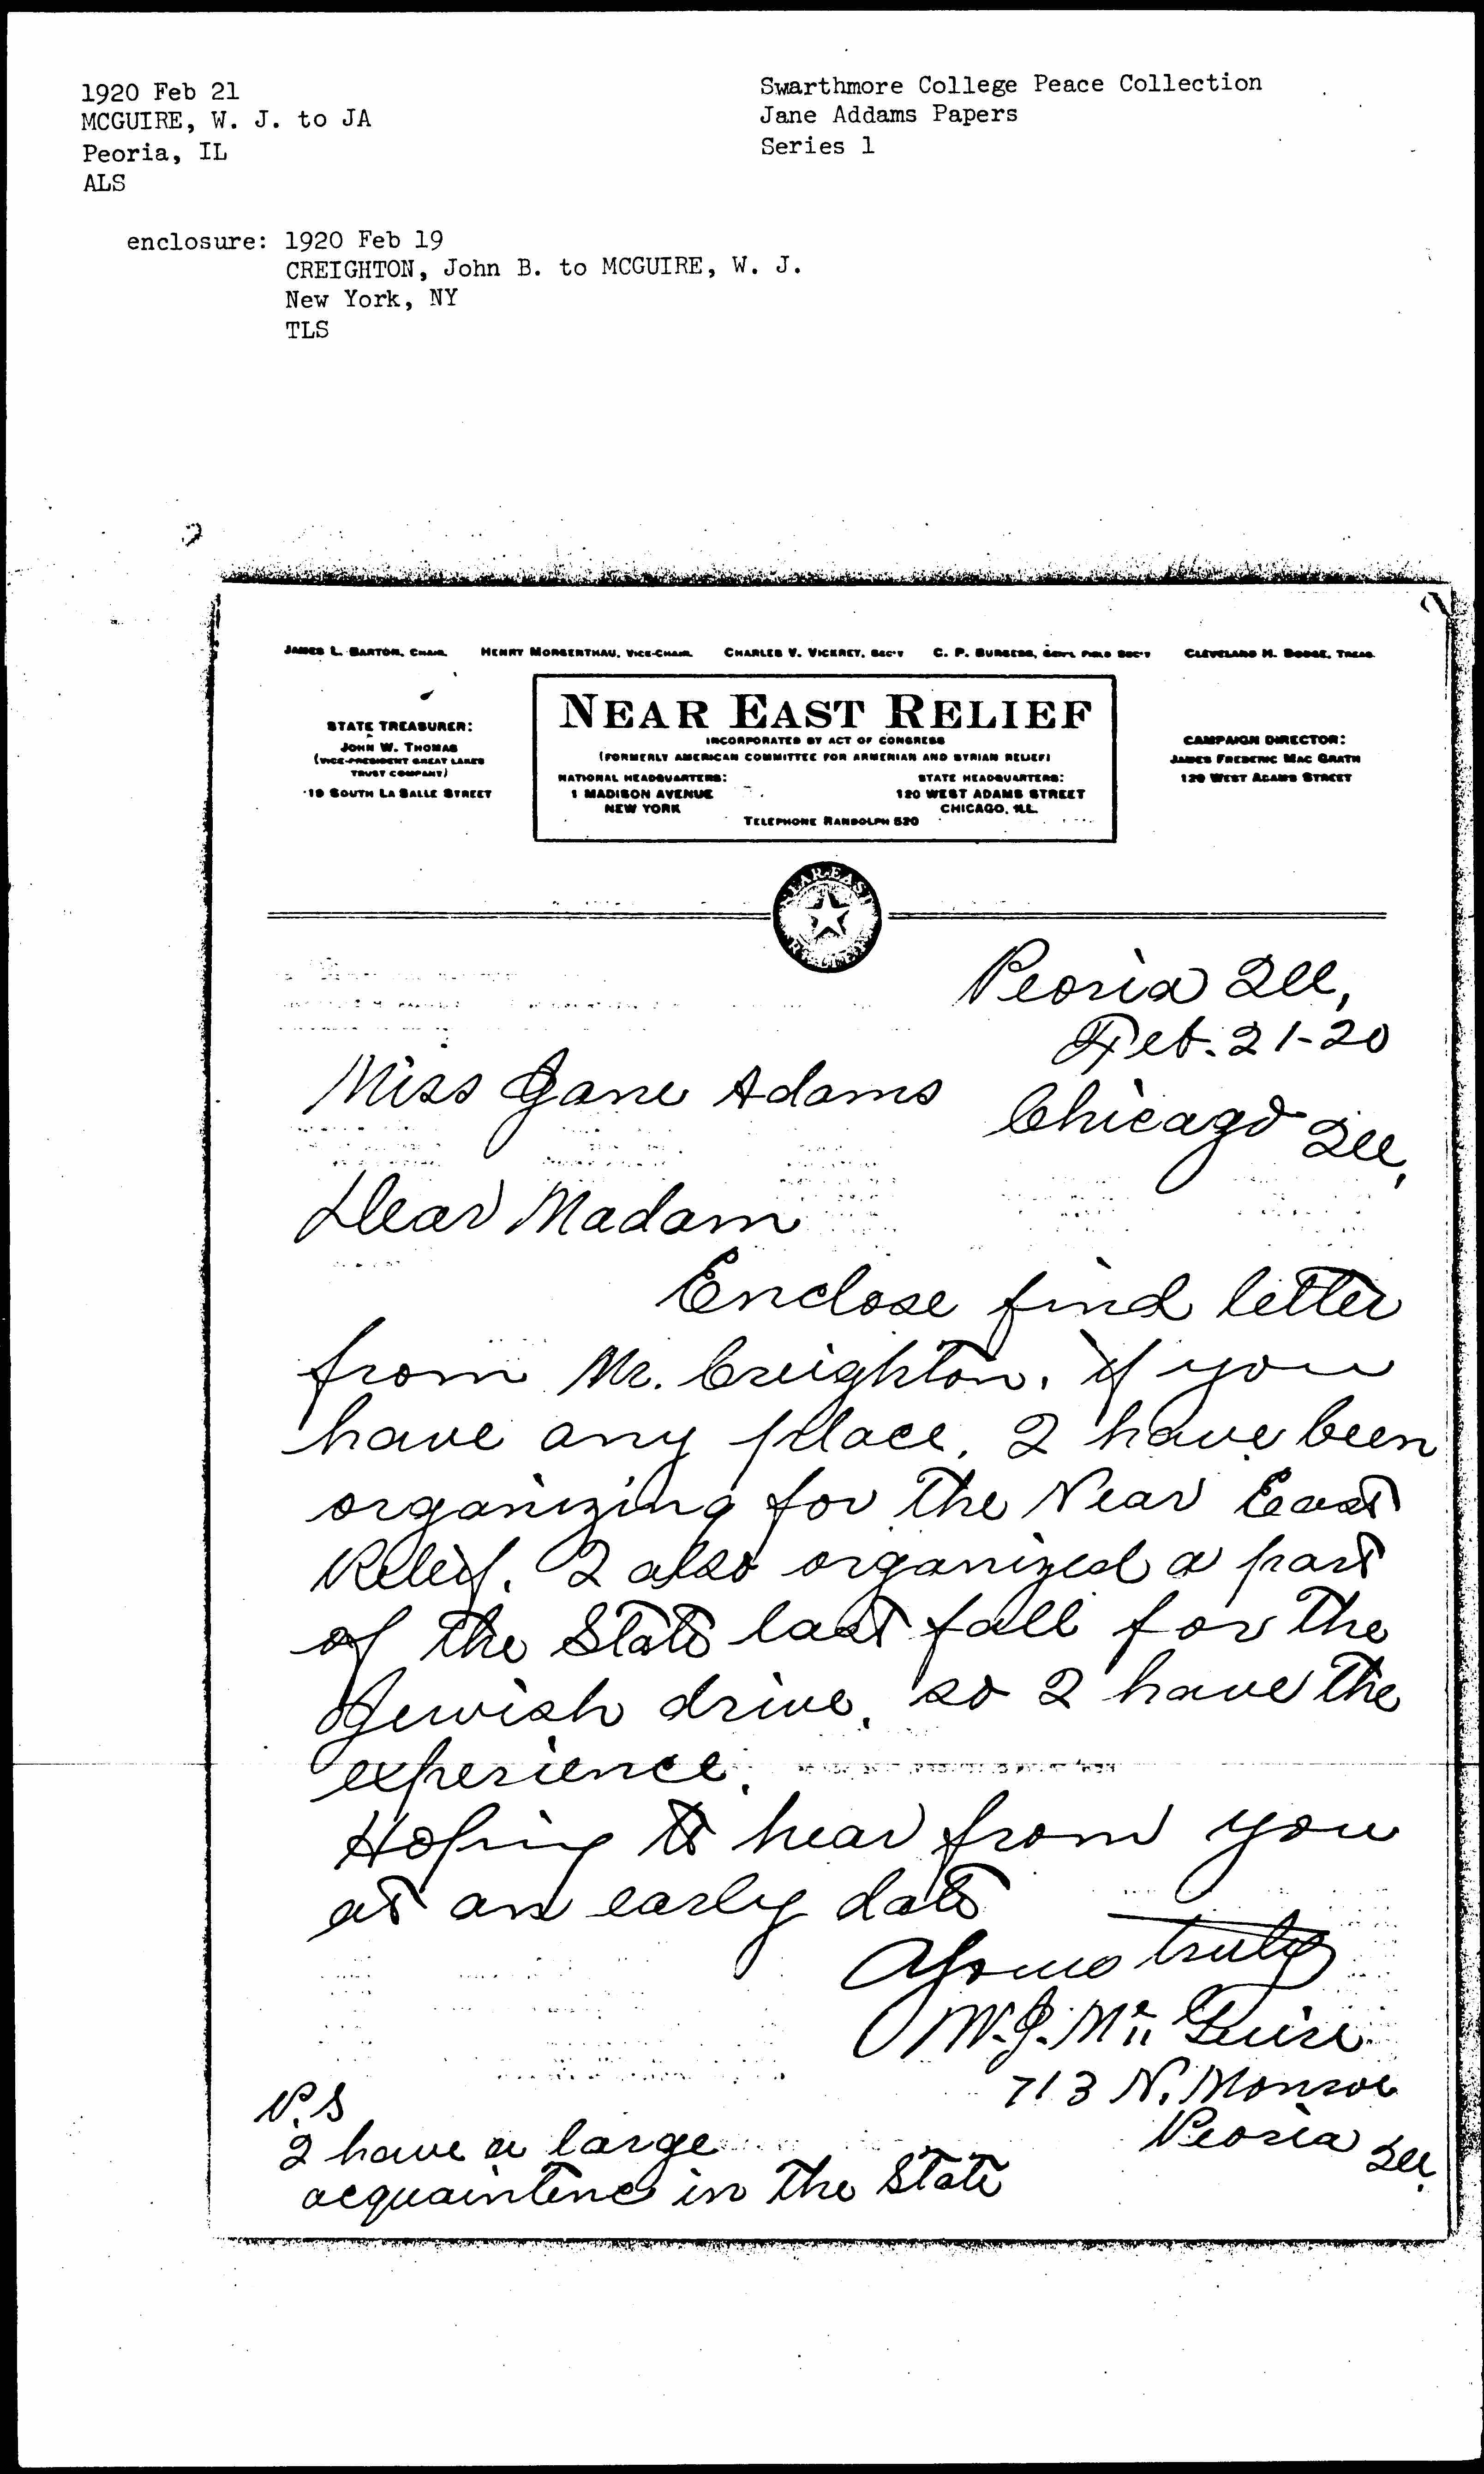 1920 Feb 21
MCGUIRE, W. J. to JA
Peoria, IL
ALS
Swarthmore College Peace Collection
Jane Addams Papers
Series 1
enclosure: 1920 Feb 19
CREIGHTON, John B. to MCGUIRE, W. J.
New York, NY
TLS
JAMES L. BARTON, CHAIR. HENRY MORGENTHAU, VICE-CHAIR. CHARLES V. VICKREY, SEC'Y C. P. BURGESS, GEN'L FIELD SEC'Y CLEVELAND H. DODGE, TREAS.
STATE TREASURER:
JOHN W. THOMAS
(VICE-PRESIDENT GREAT LAKES
TRUST COMPANY)
19 SOUTH LA SALLE STREET
NEAR EAST RELIEF
INCORPORATED BY ACT OF CONGRESS
(FORMERLY AMERICAN COMMITTEE FOR ARMENIAN AND SYRIAN RELIEF)
NATIONAL HEADQUARTERS:
1 MADISON AVENUE
NEW YORK
STATE HEADQUARTERS:
120 WEST ADAMS STREET
CHICAGO, ILL.
TELEPHONE RANDOLPH 520
CAMPAIGN DIRECTOR:
JAMES FREDERIC MAC GRATH
120 WEST ADAMS STREET
NEAR EAST
RELIEF
Peoria Ill,
Feb. 21-20
Miss Jane Adams
Chicago Ill,
Dear Madam
Enclose find letter
from Mr. Creighton. if you
have any place. I have been
organizing for the Near East
Relief. I also organized a part
of the State last fall for the
Jewish drive. so I have the
experience.
Hoping to hear from you
at an early date
Yours truly
W. J. McGuire
713 N. Monroe
Peoria Ill.
P.S
I have a large
acquaintenc in the State